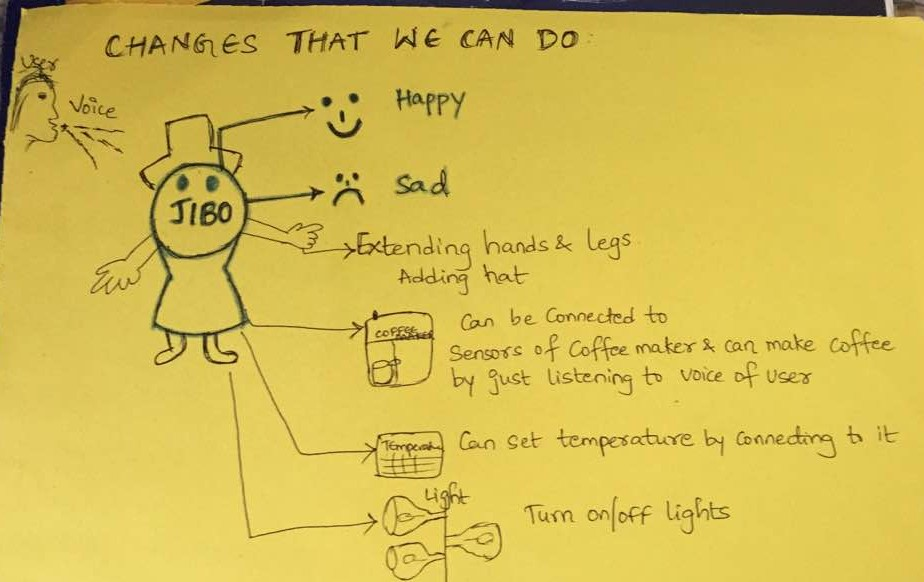 CHANGES THAT WE CAN DO:
User
Voice
Happy
JIBO
Sad
Extending hands & legs
Adding hat
COFFEE
Can be Connected to
Sensors of Coffee maker & can make coffee
by just listening to voice of user
Can set temperature by connecting to it
Light
Turn on/off lights